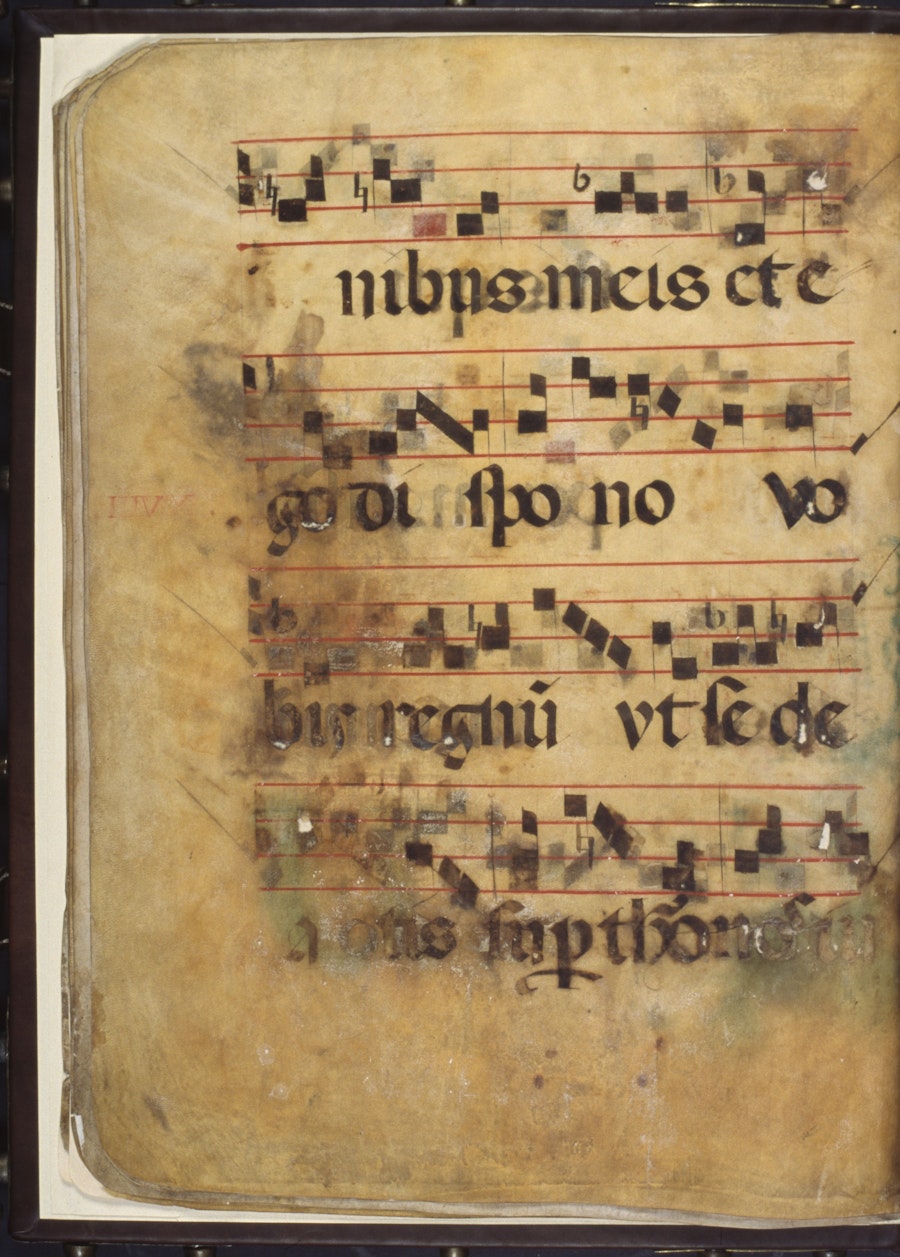 nibus meis et e
go di spo no vo
bis regnū vt se de
a otis sup thronos tu